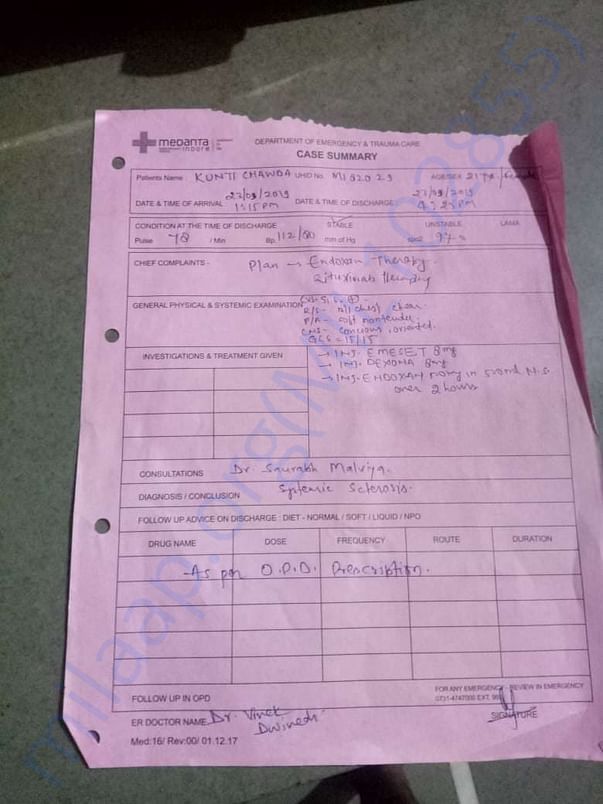 medanta
indore
DEPARTMENT OF EMERGENCY & TRAUMA CARE
CASE SUMMARY
Patients Name KUNTI CHAWDA UHID No. MI 92023 AGE/SEX 21 Yr / Female
DATE & TIME OF ARRIVAL 27/09/2019 1:15 pm DATE & TIME OF DISCHARGE 27/09/2019 4:25 pm
CONDITION AT THE TIME OF DISCHARGE STABLE UNSTABLE LAMA
Pulse 78 / Min Bp. 112/80 mm of Hg spo2 97%
CHIEF COMPLAINTS - Plan → Endoxan Therapy.
Rituximab therapy
GENERAL PHYSICAL & SYSTEMIC EXAMINATION
R/S - B/L chest clear.
P/A - soft nontender.
CNS - concious, oriented.
GCS = 15/15
INVESTIGATIONS & TREATMENT GIVEN
→ INJ. EMESET 8mg
→ INJ. DEXONA 8mg
→ INJ. ENDOXAN in 500ml N.S.
over 2 hours
CONSULTATIONS Dr. Saurabh Malviya.
DIAGNOSIS / CONCLUSION Systemic Sclerosis.
FOLLOW UP ADVICE ON DISCHARGE : DIET - NORMAL / SOFT / LIQUID / NPO
DRUG NAME DOSE FREQUENCY ROUTE DURATION
-As per O.P.D. Prescription.
FOLLOW UP IN OPD
FOR ANY EMERGENCY - REVIEW IN EMERGENCY
0731-4747000 EXT.
ER DOCTOR NAME Dr. Vivek
Dwivedi
SIGNATURE
Med:16/ Rev:00/ 01.12.17
milaap.org